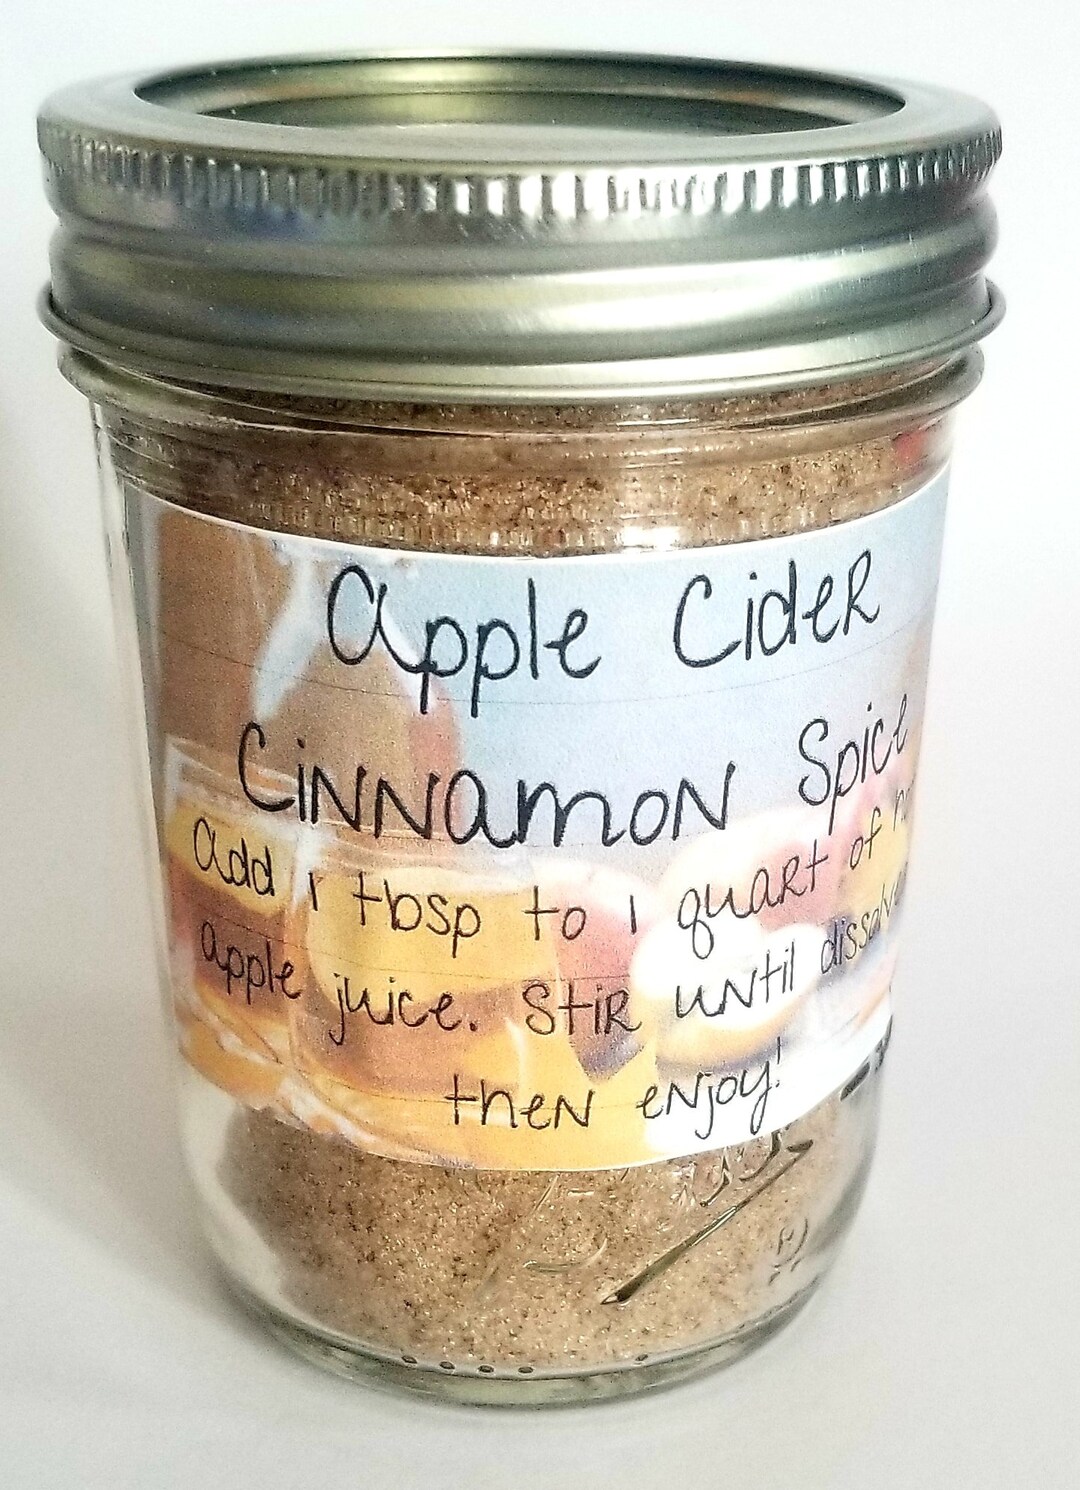 Apple Cider
Cinnamon Spice
Add 1 tbsp to 1 quart of
apple juice. Stir until
then enjoy!